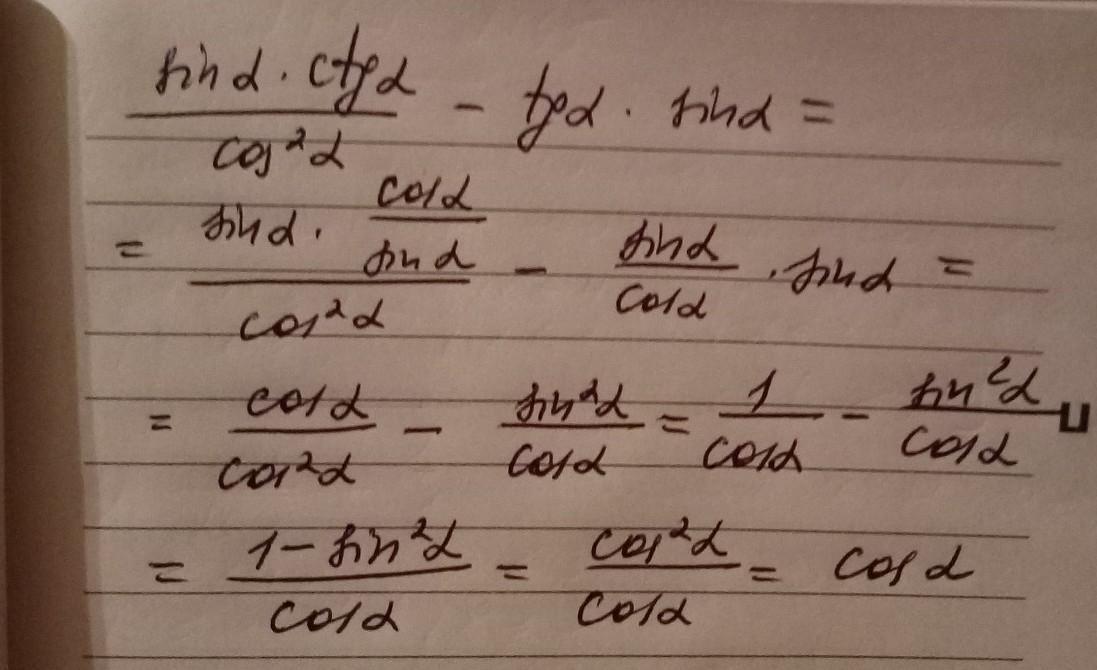 sinα · ctgα / cos²α − tgα · sinα =
= sinα · cosα / sinα / cos²α − sinα / cosα · sinα =
= cosα / cos²α − sin²α / cosα = 1 / cosα − sin²α / cosα =
= 1 − sin²α / cosα = cos²α / cosα = cosα